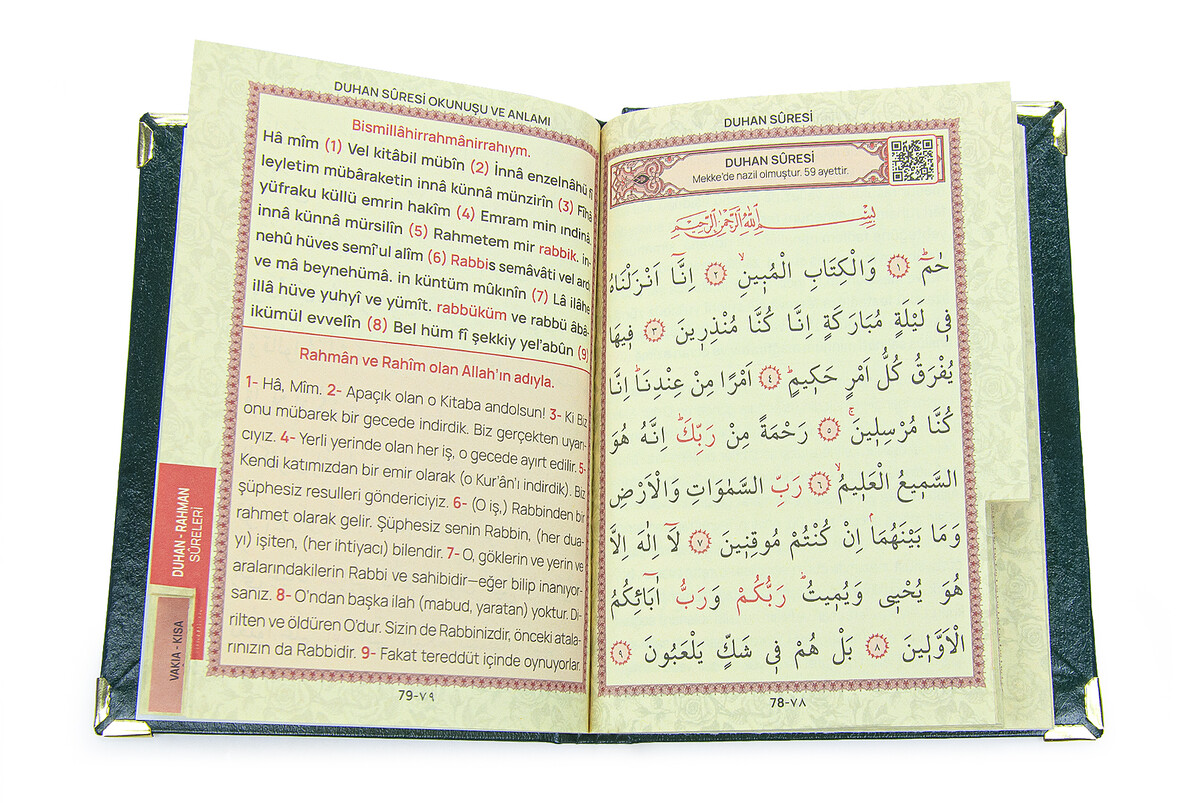 DUHAN SÛRESİ
DUHAN SÛRESİ
Mekke'de nazil olmuştur. 59 ayettir.
بِسْمِ اللّٰهِ الرَّحْمٰنِ الرَّحٖيمِ
حٰمٓ ﴿١﴾ وَالْكِتَابِ الْمُبٖينِ ﴿٢﴾ اِنَّٓا اَنْزَلْنَاهُ
فٖى لَيْلَةٍ مُبَارَكَةٍ اِنَّا كُنَّا مُنْذِرٖينَ ﴿٣﴾ فٖيهَا
يُفْرَقُ كُلُّ اَمْرٍ حَكٖيمٍ ﴿٤﴾ اَمْرًا مِنْ عِنْدِنَا اِنَّا
كُنَّا مُرْسِلٖينَ ﴿٥﴾ رَحْمَةً مِنْ رَبِّكَ اِنَّهُ هُوَ
السَّمٖيعُ الْعَلٖيمُ ﴿٦﴾ رَبِّ السَّمٰوَاتِ وَالْاَرْضِ
وَمَا بَيْنَهُمَا اِنْ كُنْتُمْ مُوقِنٖينَ ﴿٧﴾ لَٓا اِلٰهَ اِلَّا
هُوَ يُحْيٖى وَيُمٖيتُ رَبُّكُمْ وَرَبُّ اٰبَٓائِكُمُ
الْاَوَّلٖينَ ﴿٨﴾ بَلْ هُمْ فٖى شَكٍّ يَلْعَبُونَ ﴿٩﴾
78-٧٨
DUHAN SÛRESİ OKUNUŞU VE ANLAMI
Bismillâhirrahmânirrahıym.
Hâ mîm (1) Vel kitâbil mübîn (2) İnnâ enzelnâhü fî
leyletim mübâraketin innâ künnâ münzirîn (3) Fîhâ
yüfraku küllü emrin hakîm (4) Emram min ındinâ,
innâ künnâ mürsilîn (5) Rahmetem mir rabbik. in-
nehû hüves semî'ul alîm (6) Rabbis semâvâti vel ard
ve mâ beynehümâ. in küntüm mûkınîn (7) Lâ ilâhe
illâ hüve yuhyî ve yümît. rabbüküm ve rabbü âbâ-
ikümül evvelîn (8) Bel hüm fî şekkiy yel'abûn (9)
Rahmân ve Rahîm olan Allah'ın adıyla.
1- Hâ, Mîm. 2- Apaçık olan o Kitaba andolsun! 3- Ki Biz
onu mübarek bir gecede indirdik. Biz gerçekten uyarı-
cıyız. 4- Yerli yerinde olan her iş, o gecede ayırt edilir. 5-
Kendi katımızdan bir emir olarak (o Kur'ân'ı indirdik). Biz
şüphesiz resulleri göndericiyiz. 6- (O iş,) Rabbinden bir
rahmet olarak gelir. Şüphesiz senin Rabbin, (her dua-
yı) işiten, (her ihtiyacı) bilendir. 7- O, göklerin ve yerin ve
aralarındakilerin Rabbi ve sahibidir—eğer bilip inanıyor-
sanız. 8- O'ndan başka ilah (mabud, yaratan) yoktur. Di-
rilten ve öldüren O'dur. Sizin de Rabbinizdir, önceki atala-
rınızın da Rabbidir. 9- Fakat tereddüt içinde oynuyorlar.
79-٧٩
DUHAN - RAHMAN
SÛRELERİ
VAKIA - KISA